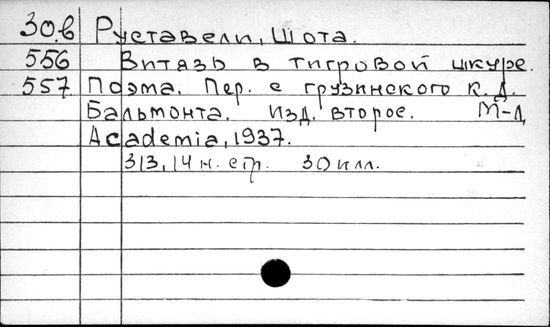 30.б Руставели, Шота.
556 Витязь в тигровой шкуре.
557 Поэма. Пер. с грузинского К.Д.
Бальмонта. Изд. второе. М-Л,
Academia, 1937.
313, 14 н. стр. 30 илл.